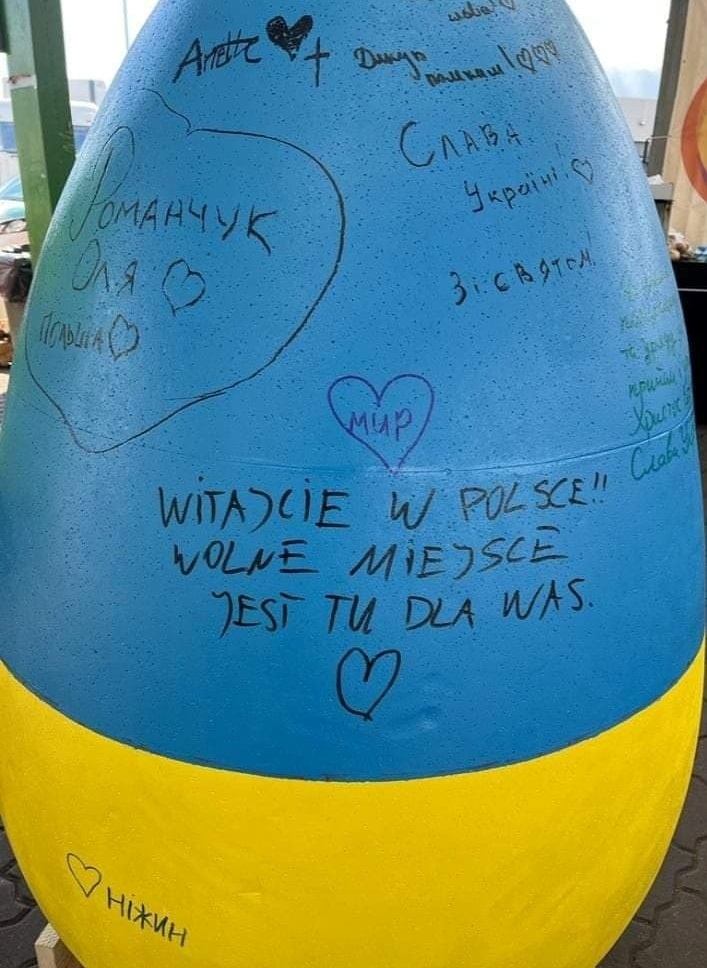 слава! ♡
Anette ♥ + Дякую
полякам! ♡♡♡
Слава
Україні! ♡
Романчук
Оля ♡
Польща ♡
Зі святом!
мир
WITAJCIE W POLSCE!!
WOLNE MIEJSCE
JEST TU DLA WAS.
♡
Христос
Слава
♡ Ніжин